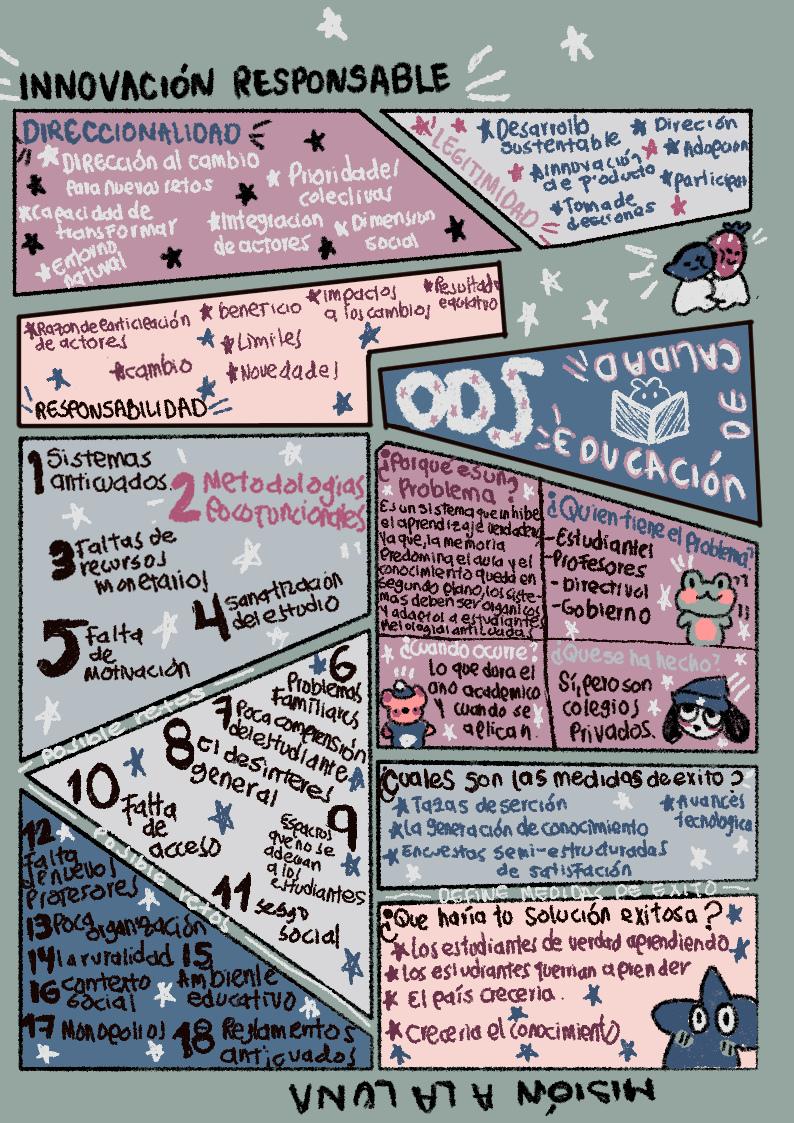 INNOVACIÓN RESPONSABLE
DIRECCIONALIDAD
DIRECCIÓN al cambio
para nuevos retos
Capacidad de
transformar
Entorno
natural
Prioridades
colectivas
Integración
de actores
Dimension
social
LEGITIMIDAD
Desarrollo
sustentable
Innovación
de producto
Toma de
desciones
Direción
Adopción
participa
Razon de Participación
de actores
cambio
beneficio
Limiles
Novedades
impactos
a los cambios
Resultado
equitativo
RESPONSABILIDAD
ODS
EDUCACIÓN
DE
CALIDAD
1 Sistemas
anticuados.
2 Metodologías
Poco funcionales
3 Faltas de
recursos
monetarios
4 Sanatización
del estudio
5 Falta
de
motivación
posible retos
6
Problemas
Familiares
7 Poca comprensión
del estudiante
8 El desinteres
general
9
Espacios
que no se
adecuan
a los
estudiantes
10 Falta
de
acceso
11 sesgo
social
posible retos
12
Falta
de nuevos
profesores
13 Poca organización
14 la ruralidad
15
Ambiente
educativo
16 contexto
social
17 Monopolios
18 Reglamentos
anticuados
¿Porque es un
Problema?
Es un sistema que inhibe
el aprendizaje verdadero
Ya que, la memoria
Predomina el aura y el
conocimiento queda en
segundo plano, los siste-
mas deben ser organicos
Y adaptar a estudiantes
Metologias anticuadas
¿Quien tiene el Problema?
-Estudiantes
-Profesores
-Directivos
-Gobierno
¿Cuando ocurre?
Lo que dura el
ano academico
Y cuando se
aplican.
¿Que se ha hecho?
Sí, pero son
colegios
Privados.
¿Cuales son las medidas de exito?
Tazas de serción
La generación de conocimiento
Encuestas semi-estructuradas
de satisfación
Avances
tecnologica
DEFINE MEDIDAS DE EXITO
¿Que haría tu solución exitosa?
Los estudiantes de verdad aprendiendo
los estudiantes querrian aprender
El país creceria.
Creceria el conocimiento
MISIÓN A LA LUNA